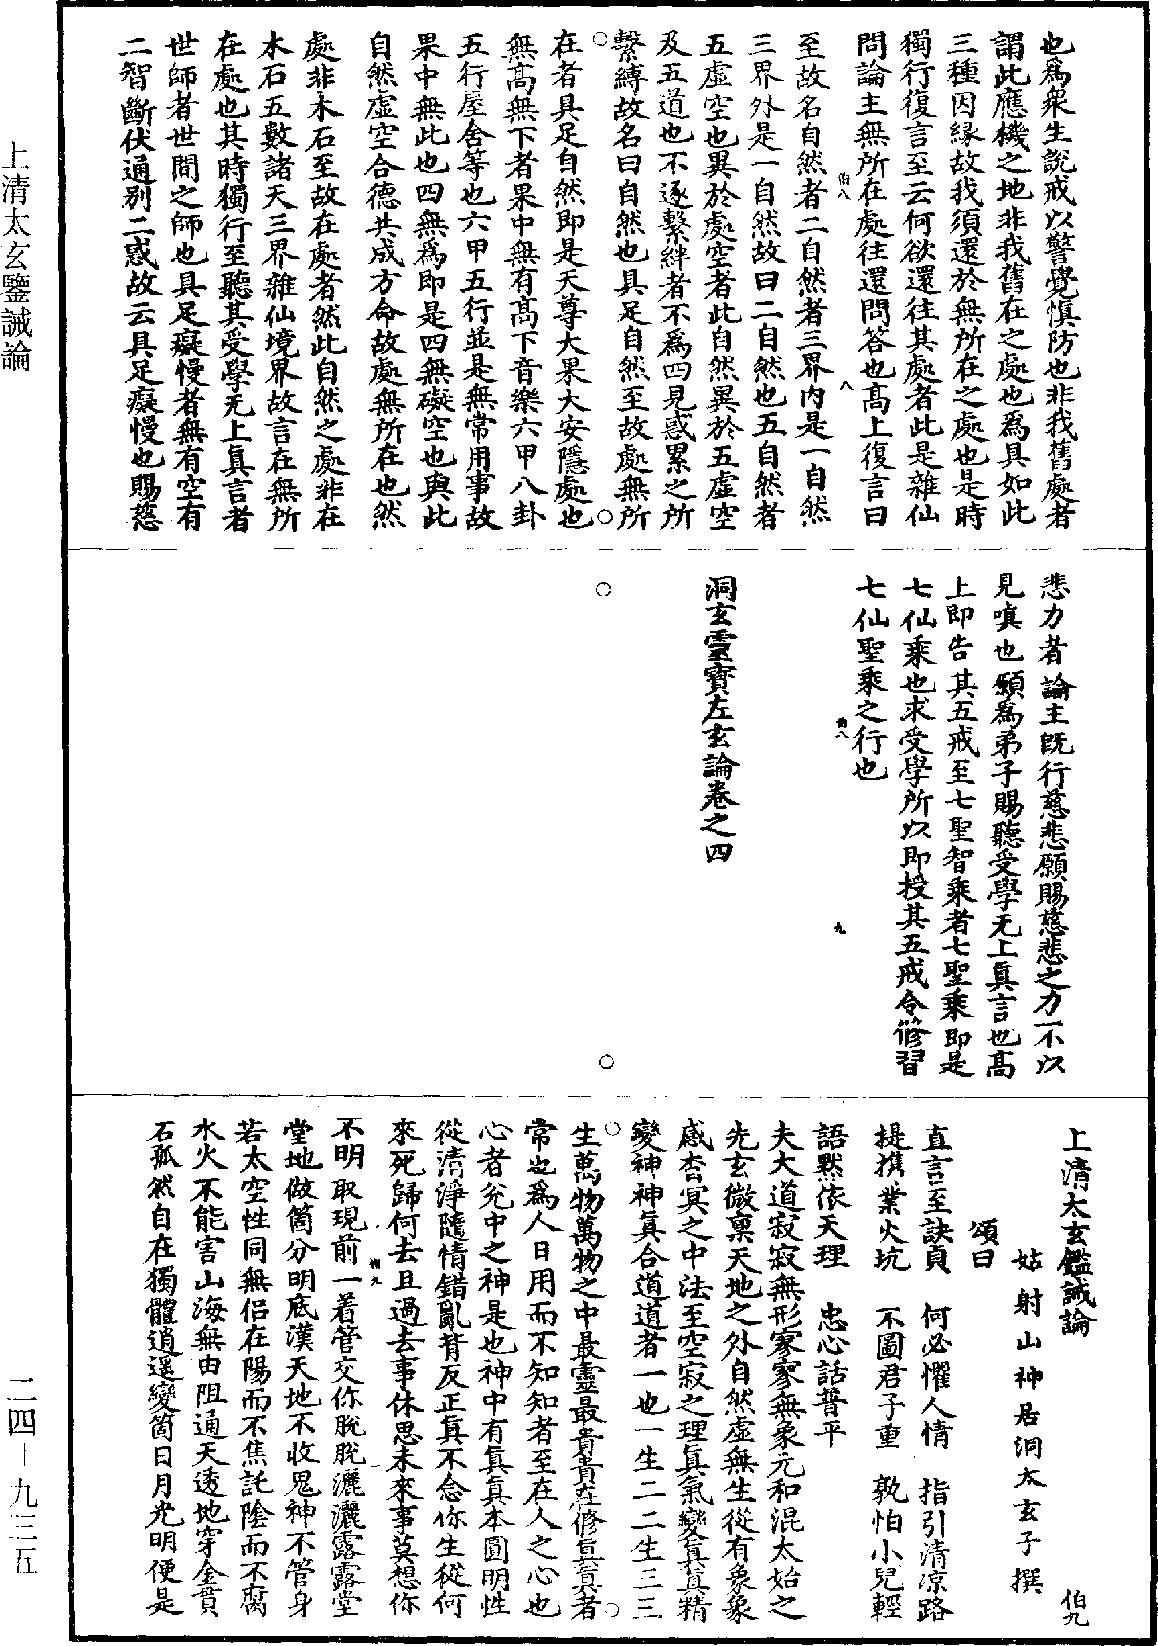 也爲衆生說戒以警覺愼防也非我舊處者
謂此應機之地非我舊在之處也爲具如此
三種因緣故我須還於無所在之處也是時
獨行復言至云何欲還往其處者此是雜仙
問論主無所在處往還問答也高上復言曰
伯八
八
至故名自然者二自然者三界內是一自然
三界外是一自然故曰二自然也五自然者
五虛空也異於處空者此自然異於五虛空
及五道也不逐繫絆者不爲四見惑累之所
繫縛故名曰自然也具足自然至故處無所
在者具足自然即是天尊大果大安隱處也
無高無下者果中無有高下音樂六甲八卦
五行屋舍等也六甲五行並是無常用事故
果中無此也四無爲即是四無礙空也與此
自然虛空合德共成方命故處無所在也然
處非木石至故在處者然此自然之處非在
木石五數諸天三界雜仙境界故言在無所
在處也其時獨行至聽其受學无上眞言者
世師者世間之師也具足癡慢者無有空有
二智斷伏通別二惑故云具足癡慢也賜慈
悲力者論主既行慈悲願賜慈悲之力不以
見嗔也願爲弟子賜聽受學无上眞言也高
上即告其五戒至七聖智乘者七聖乘即是
七仙乘也求受學所以即授其五戒令修習
七仙聖乘之行也
伯八
九
洞玄靈寶左玄論卷之四
上清太玄鑑誡論
伯九
姑射山神居洞太玄子撰
頌曰
直言至訣貞 何必懼人情 指引清凉路
提携業火坑 不圖君子重 孰怕小兒輕
語默依天理 忠心話普平
夫大道寂寂無形寥寥無象元和混太始之
先玄微稟天地之外自然虛無生從有象象
感杳冥之中法至空寂之理眞氣變眞眞精
變神神眞合道道者一也一生二二生三三
生萬物萬物之中最靈最貴貴在修眞眞者
常也爲人日用而不知知者至在人之心也
心者兊中之神是也神中有眞眞本圓明性
從清淨隨情錯亂背反正眞不念你生從何
來死歸何去且過去事休思未來事莫想你
伯九
一
不明取現前一着管交你脫脫灑灑露露堂
堂地做箇分明底漢天地不收鬼神不管身
若太空性同無侶在陽而不焦託陰而不腐
水火不能害山海無由阻通天透地穿金貫
石孤然自在獨體逍遥變箇日月光明便是
上清太玄鑒誡論
二四－九三五